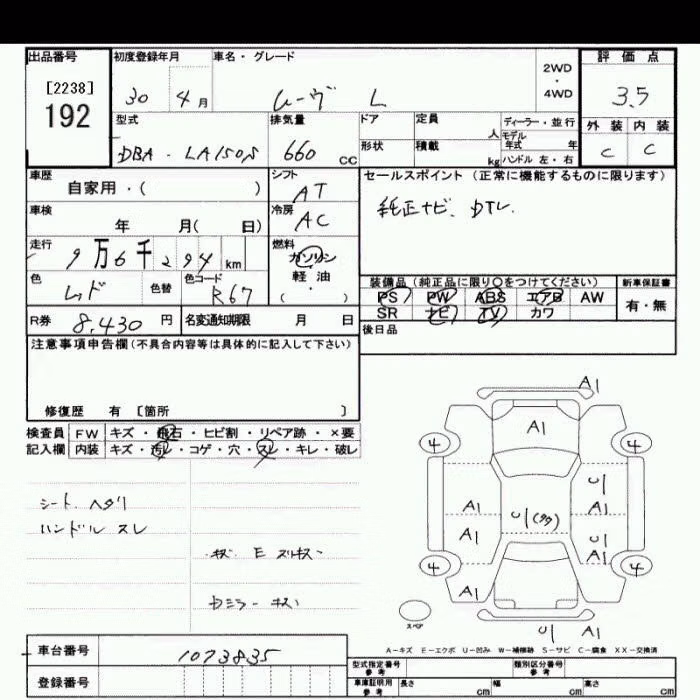 出品番号
[2238]
192
初度登録年月
30 4月
車名・グレード
ムーヴ L
2WD
・
4WD
評価点
3.5
外装 内装
C C
型式
DBA - LA150S
排気量
660 CC
ドア
形状
定員
人
積載
kg
ディーラー・並行
モデル
年式 年
ハンドル 左・右
車歴
自家用・( )
シフト
AT
車検
年 月( 日)
冷房
AC
走行
9万6千294km
燃料
ガソリン
軽油
( ・ )
色
レッド
色替
色コード
R67
R券 8,430円
名変通知期限 月 日
セールスポイント(正常に機能するものに限ります)
純正ナビ、DTV
装備品(純正品に限り○をつけてください)
新車保証書
PS PW ABS エアB AW
SR ナビ TV カワ
有・無
後日品
注意事項申告欄(不具合内容等は具体的に記入して下さい)
修復歴 有 〔箇所 〕
検査員
記入欄
FW キズ・飛石・ヒビ割・リペア跡・×要
内装 キズ・汚レ・コゲ・穴・スレ・キレ・破レ
シート ヘタリ
ハンドル スレ
キズ E
Dミラー キズ
A1
A1
4
4
A1
A1
A1
U(多)
U
A1
U
A1
4
4
U A1
スペア
A-キズ E-エクボ U-凹み W-補修跡 S-サビ C-腐食 XX-交換済
車台番号 1073835
登録番号
型式指定番号
参考
類別区分番号
参考
車庫証明用
参考
長さ cm 幅 cm 高さ cm